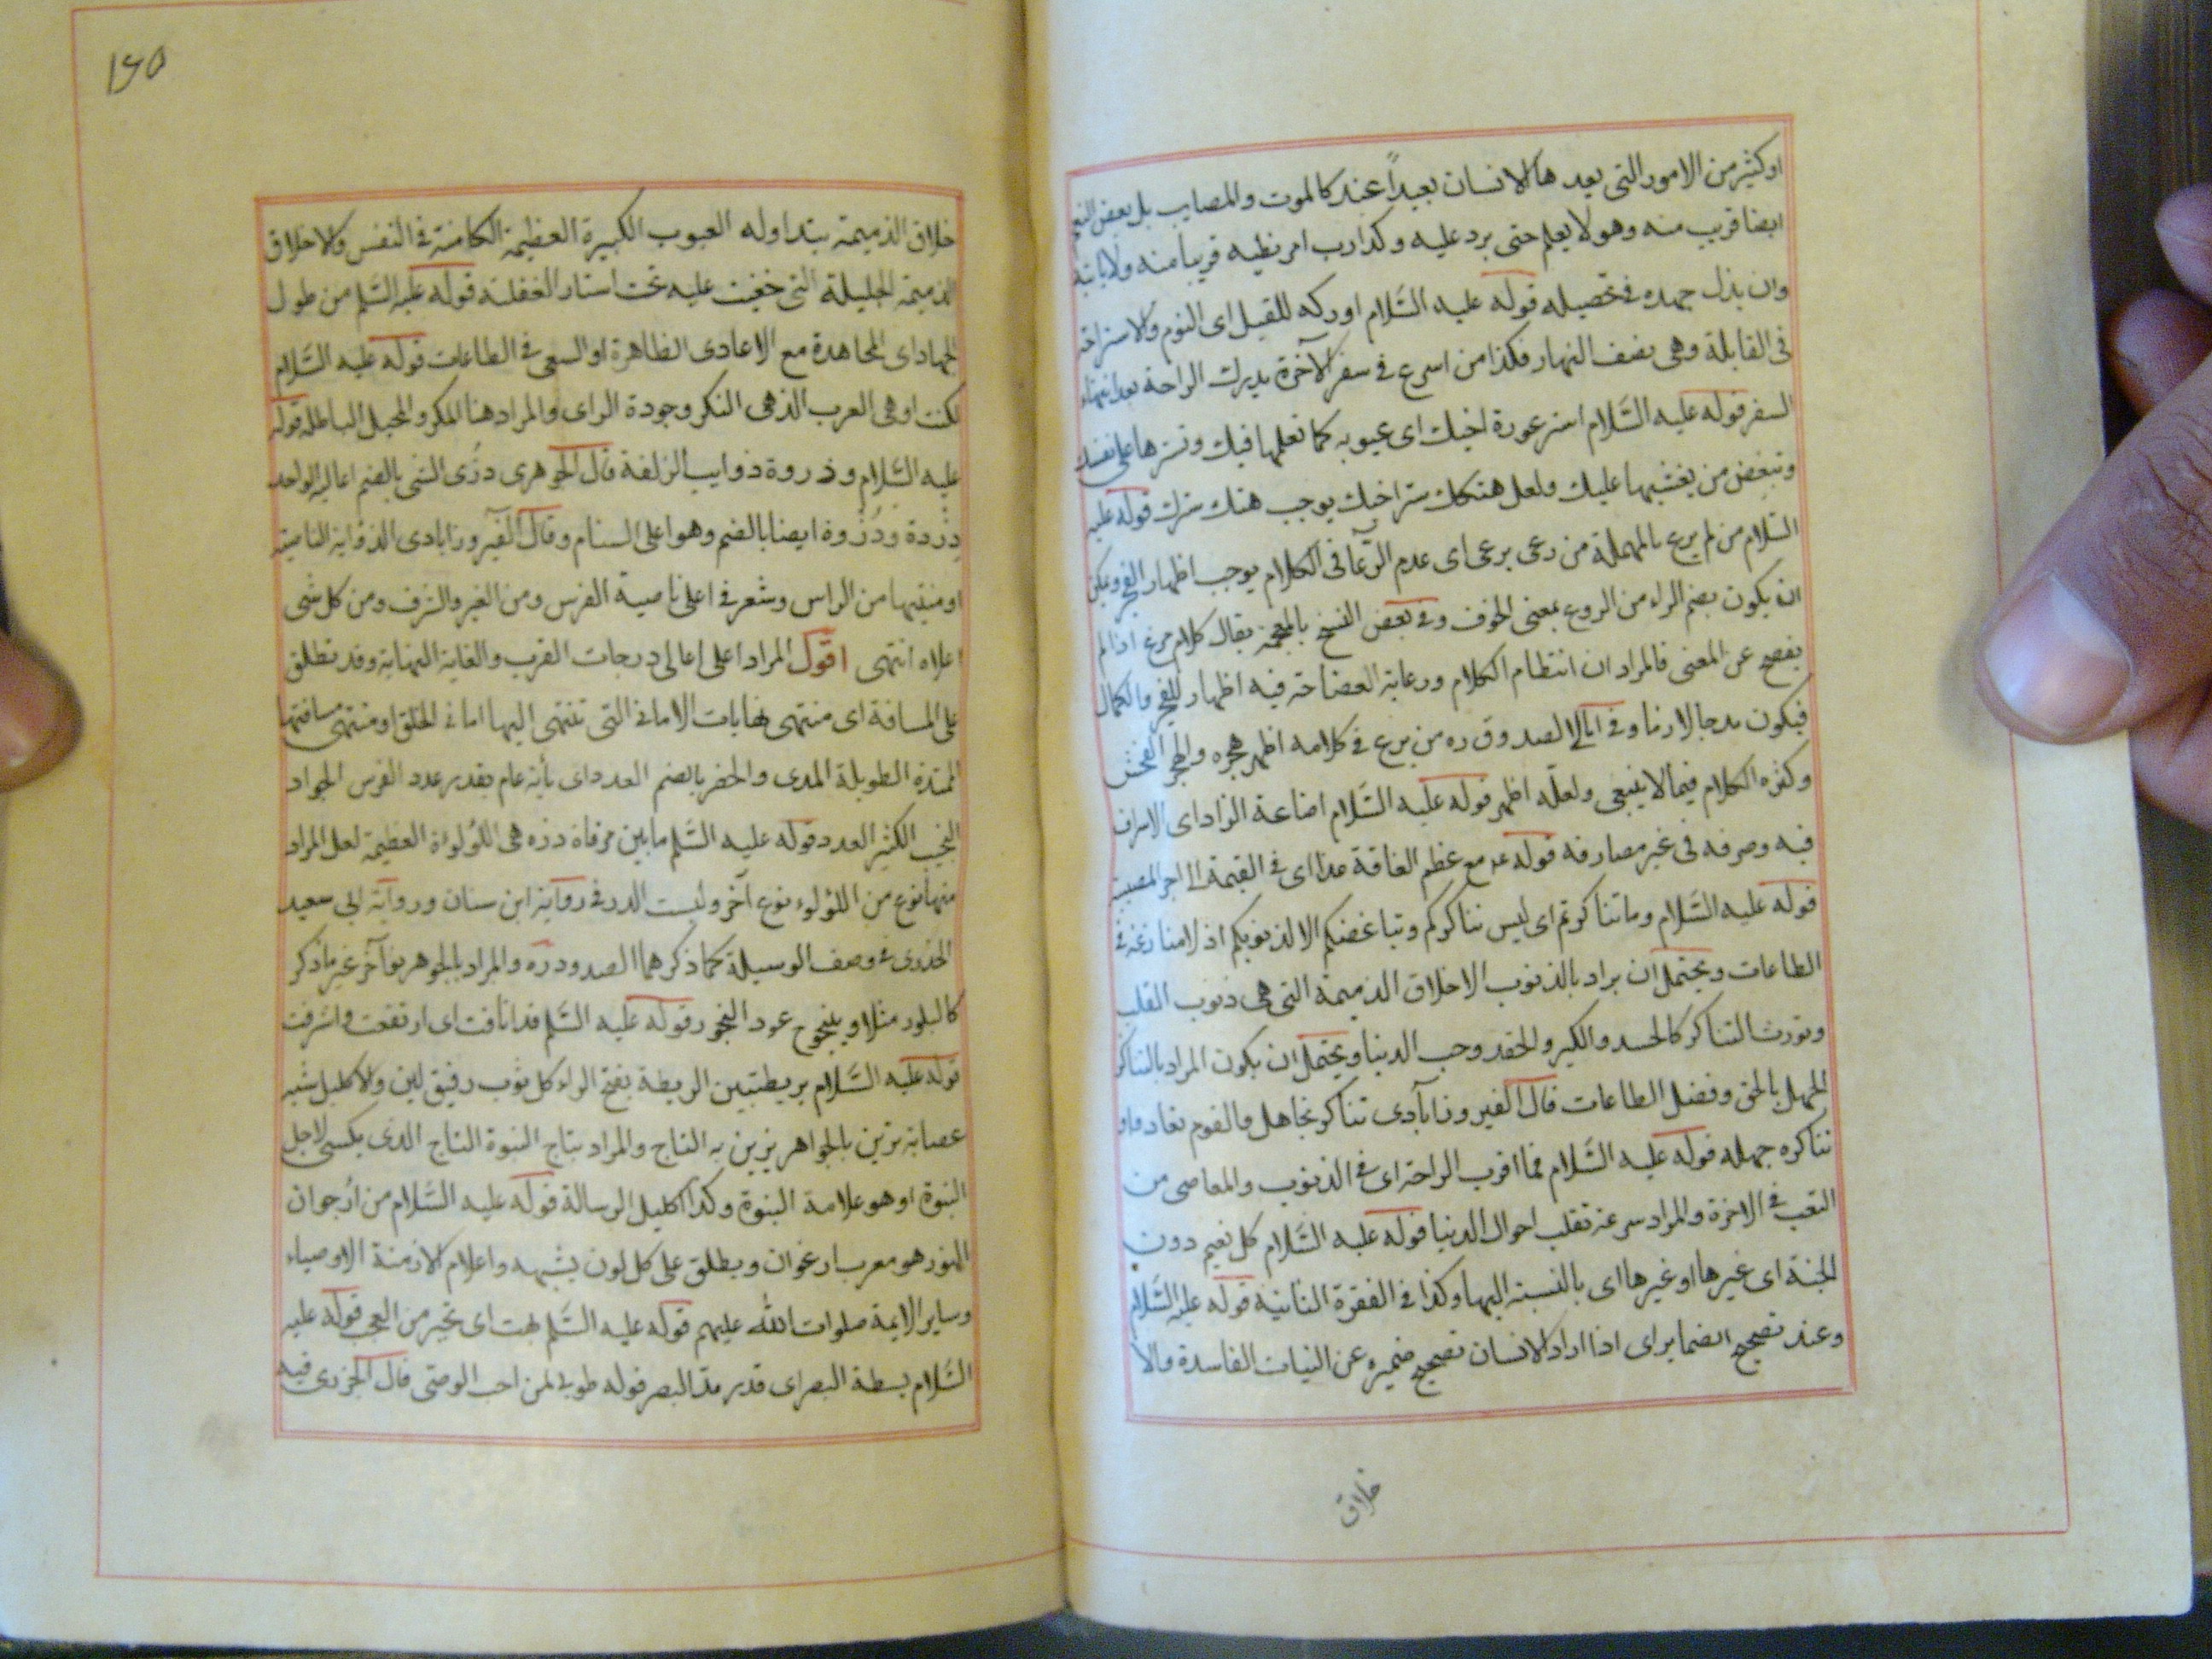 او كثير من الامور التى يعدها الانسان بعيداً عند كالموت والمصايب بل بعض النعم
ايضا قريب منه وهو لا يعلم حتى يرد عليه وكذا رب امر نظيه قريبا منه ولا ياتيه
وان بذل جهده فى تحصيله قوله عليه السَّلام اوركه للمقيل اى النوم والاستراحة
فى القايلة وهى نصف النهار فكذا من اسرع فى سفر الآخرة يدرك الراحة بعد انتهاء
السفر قوله عليه السَّلام استر عورة اخيك اى عيوبه كما تعلمها فيك وتسترها على نفسك
وتبغض من يغشيها عليك ولعل هتكك ستر اخيك يوجب هتك سترك قوله عليه
السّلام من لم يرع بالمهملة من رعى يرعى اى عدم الرّعا فى الكلام يوجب اظهار الفخر ويمكن
ان يكون بضم الراء من الروع بمعنى الخوف وفى بعض النسخ بالمعجمة يقال كلام مرغ اذا لم
يفصح عن المعنى فالمراد ان انتظام الكلام ورعاية الفصاحة فيه اظهار للفخر والكمال
فيكون مدحا لازما وفى امالى الصدوق ره من يرع فى كلامه اظهر هجره والهجر الفحش
وكثره الكلام فيما لا ينبغى ولعلّه اظهر قوله عليه السَّلام اضاعة الزاد اى الاسراف
فيه وصرفه فى غير مصارفه قوله ع مع عظم الفاقة غدا اى فى القيمة الى اجر المصيبة
قوله عليه السَّلام وما تناكرتم اى ليس تناكركم وتباغضكم الا لذنوبكم اذ لا منازعة فى
الطاعات ويحتمل ان يراد بالذنوب الاخلاق الذميمة التى هى ذنوب القلب
وتورث التناكر كالحسد والكبر والحقد وحب الدنيا ويحتمل ان يكون المراد بالتناكر
الجهل بالحق وفضل الطاعات قال الفيروزآبادى تناكر تجاهل والقوم تعادوا و
تناكره جهله قوله عليه السَّلام فما اقرب الراحة اى فى الذنوب والمعاصى من
التعب فى الاخرة والمراد سرعة تقلب احوال الدنيا قوله عليه السَّلام كل نعيم دون
الجنة اى غيرها او غيرها اى بالنسبة اليها وكذا فى الفقرة الثانية قوله عليه السَّلام
وعند تصحيح الضماير اى اذا اراد الانسان تصحيح ضميره عن النيات الفاسدة والا
خلاق
١٤٥
خلاق الذميمة يبتدا وله العيوب الكبيرة العظيمة الكامنة فى النفس والاخلاق
الذميمة الجليلة التى خفيت عليه تحت استار الغفلة قوله عليه السَّلم من طول
الجهاد اى المجاهدة مع الاعادى الظاهرة او السعى فى الطاعات قوله عليه السَّلام
لكنت اوهى العرب الذهى النكر وجودة الراى والمراد هنا المكر والحيل الباطلة قوله
عليه السَّلام وذروة ذوايب الزلفة قال الجوهرى ذُرى الشى بالضم اعاليه الواحد
ذِروة وذُروة ايضا بالضم وهو اعلى السنام وقال الفيروزابادى الذؤابة الناصية
او منبتها من الراس وشعر فى اعلى ناصية الفرس ومن العز والشرف ومن كل شى
اعلاه انتهى اقول المراد اعلى اعالى درجات القرب والغاية النهاية وقد تطلق
على المسافة اى منتهى نهايات الامانى التى تنتهى اليها امانى الخلق او منتهى مسافتها
الممتدة الطويلة المدى والحضر بالضم العدو اى ماية عام بقدر عدد الفرس الجواد
النجيب الكثير العدد قوله عليه السَّلم ما بين مرقاة درّه هى اللؤلؤة العظيمة لعل المراد
منها نوع من اللؤلؤ نوع آخر وليست الدر فى رواية ابن سنان ورواية ابى سعيد
الخدرى فى وصف الوسيلة كما ذكرهما الصدوق ره والمراد بالجوهر نوع آخر غير ما ذكر
كالبلور مثلا ويلنجوج عود البخور قوله عليه السَّلم قد انافت اى ارتفعت واشرفت
قوله عليه السَّلام بريطتين الريطة بفتح الراء كل ثوب رقيق لين والاكليل شبه
عصابة تزين بالجواهر يزين به التاج والمراد بتاج النبوة التاج الذى يكسى لاجل
النبوة او هو علامة النبوة وكذا اكليل الرسالة قوله عليه السَّلام من ارجوان
النور هو معرب ارغوان ويطلق على كل لون يشبهه واعلام الازمنة الاوصياء
وساير الايمة صلوات الله عليهم قوله عليه السَّلم بهت اى تحير من العجب قوله عليه
السَّلام بسطة البصر اى قدر مدّ البصر قوله طوبى لمن احب الوصى قال الجزرى فيه